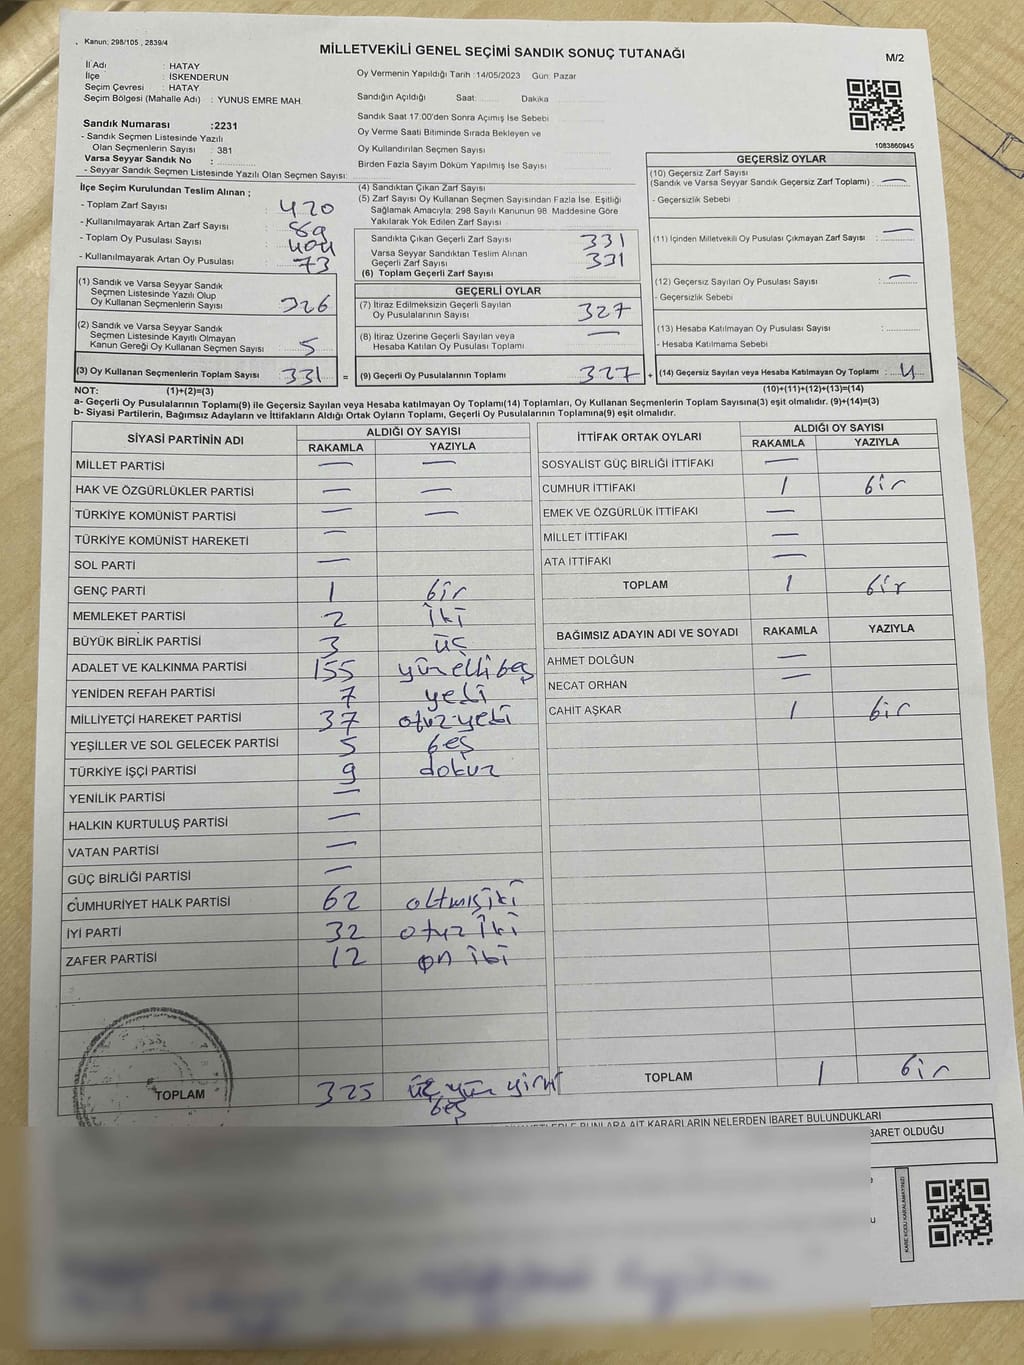 Kanun: 298/105 , 2839/4
MİLLETVEKİLİ GENEL SEÇİMİ SANDIK SONUÇ TUTANAĞI
M/2
İl Adı : HATAY
İlçe : İSKENDERUN
Seçim Çevresi : HATAY
Seçim Bölgesi (Mahalle Adı) : YUNUS EMRE MAH.
Oy Vermenin Yapıldığı Tarih :14/05/2023 Gün: Pazar
Sandığın Açıldığı Saat:........ Dakika
Sandık Saat 17:00'den Sonra Açımış İse Sebebi
Oy Verme Saati Bitiminde Sırada Bekleyen ve
Oy Kullandırılan Seçmen Sayısı
Birden Fazla Sayım Döküm Yapılmış İse Sayısı
1083860945
Sandık Numarası :2231
- Sandık Seçmen Listesinde Yazılı
Olan Seçmenlerin Sayısı : 381
Varsa Seyyar Sandık No :
- Seyyar Sandık Seçmen Listesinde Yazılı Olan Seçmen Sayısı:
İlçe Seçim Kurulundan Teslim Alınan ;
- Toplam Zarf Sayısı : 420
- Kullanılmayarak Artan Zarf Sayısı : 89
- Toplam Oy Pusulası Sayısı : 404
- Kullanılmayarak Artan Oy Pusulası : 73
(1) Sandık ve Varsa Seyyar Sandık
Seçmen Listesinde Yazılı Olup
Oy Kullanan Seçmenlerin Sayısı 326
(2) Sandık ve Varsa Seyyar Sandık
Seçmen Listesinde Kayıtlı Olmayan
Kanun Gereği Oy Kullanan Seçmen Sayısı 5
(3) Oy Kullanan Seçmenlerin Toplam Sayısı 331 =
(4) Sandıktan Çıkan Zarf Sayısı
(5) Zarf Sayısı Oy Kullanan Seçmen Sayısından Fazla İse, Eşitliği
Sağlamak Amacıyla; 298 Sayılı Kanunun 98. Maddesine Göre
Yakılarak Yok Edilen Zarf Sayısı
Sandıkta Çıkan Geçerli Zarf Sayısı 331
Varsa Seyyar Sandıktan Teslim Alınan
Geçerli Zarf Sayısı 331
(6) Toplam Geçerli Zarf Sayısı
GEÇERLİ OYLAR
(7) İtiraz Edilmeksizin Geçerli Sayılan
Oy Pusulalarının Sayısı 327
(8) İtiraz Üzerine Geçerli Sayılan veya
Hesaba Katılan Oy Pusulası Toplamı —
(9) Geçerli Oy Pusulalarının Toplamı 327 +
GEÇERSİZ OYLAR
(10) Geçersiz Zarf Sayısı
(Sandık ve Varsa Seyyar Sandık Geçersiz Zarf Toplamı) : —
- Geçersizlik Sebebi
(11) İçinden Milletvekili Oy Pusulası Çıkmayan Zarf Sayısı : —
(12) Geçersiz Oy Pusulası Sayısı : —
- Geçersizlik Sebebi
(13) Hesaba Katılmayan Oy Pusulası Sayısı :
- Hesaba Katılmama Sebebi
(14) Geçersiz Sayılan veya Hesaba Katılmayan Oy Pusulası Toplamı : 4
NOT: (1)+(2)=(3) (10)+(11)+(12)+(13)=(14)
a- Geçerli Oy Pusulalarının Toplamı(9) ile Geçersiz Sayılan veya Hesaba katılmayan Oy Pusulası Toplamı(14) Toplamları, Oy Kullanan Seçmenlerin Toplam Sayısına(3) eşit olmalıdır. (9)+(14)=(3)
b- Siyasi Partilerin, Bağımsız Adayların ve İttifakların Aldığı Ortak Oyların Toplamı, Geçerli Oy Pusulalarının Toplamına(9) eşit olmalıdır.
SİYASİ PARTİNİN ADI ALDIĞI OY SAYISI
RAKAMLA YAZIYLA
MİLLET PARTİSİ — —
HAK VE ÖZGÜRLÜKLER PARTİSİ — —
TÜRKİYE KOMÜNİST PARTİSİ — —
TÜRKİYE KOMÜNİST HAREKETİ —
SOL PARTİ —
GENÇ PARTİ 1 bir
MEMLEKET PARTİSİ 2 iki
BÜYÜK BİRLİK PARTİSİ 3 üç
ADALET VE KALKINMA PARTİSİ 155 yüzellibeş
YENİDEN REFAH PARTİSİ 7 yedi
MİLLİYETÇİ HAREKET PARTİSİ 37 otuzyedi
YEŞİLLER VE SOL GELECEK PARTİSİ 5 beş
TÜRKİYE İŞÇİ PARTİSİ 9 dokuz
YENİLİK PARTİSİ —
HALKIN KURTULUŞ PARTİSİ —
VATAN PARTİSİ —
GÜÇ BİRLİĞİ PARTİSİ —
CUMHURİYET HALK PARTİSİ 62 altmışiki
İYİ PARTİ 32 otuz iki
ZAFER PARTİSİ 12 on iki
TOPLAM 325 üç yüz yirmi
beş
İTTİFAK ORTAK OYLARI ALDIĞI OY SAYISI
RAKAMLA YAZIYLA
SOSYALİST GÜÇ BİRLİĞİ İTTİFAKI —
CUMHUR İTTİFAKI 1 bir
EMEK VE ÖZGÜRLÜK İTTİFAKI —
MİLLET İTTİFAKI —
ATA İTTİFAKI —
TOPLAM 1 bir
BAĞIMSIZ ADAYIN ADI VE SOYADI RAKAMLA YAZIYLA
AHMET DOLĞUN —
NECAT ORHAN —
CAHİT AŞKAR 1 bir
TOPLAM 1 bir
BUNLARA AİT KARARLARIN NELERDEN İBARET BULUNDUKLARI
BARET OLDUĞU
KARE KODU KARALAMAYINIZ!